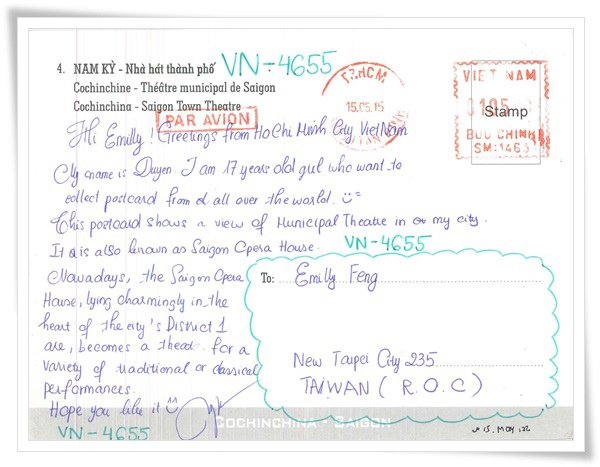 4. NAM KỲ - Nhà hát thành phố
Cochinchine - Théêtre municipal de Saigon
Cochinchina - Saigon Town Theatre
VN-4655
PAR AVION
T.P.HCM
15.05.15
VIET NAM
0105
Stamp
BUU CHINH
SM:1463
Hi Emilly! Greetings from Ho Chi Minh City VietNam
My name is Quyen I am 17 years old girl who want to
collect postcard from all over the world.
This postcard shows a view of Municipal Theatre in my city.
It is also known as Saigon Opera House.
VN-4655
Nowadays, the Saigon Opera
House, lying charmingly in the
heart of the city's District 1
are, becomes a theatr for a
variety of traditional or classical
performances.
Hope you like it
VN-4655
To: Emilly Feng
New Taipei City 235
TAIWAN ( R.O.C )
COCHINCHINA - SAIGON
15. MAY